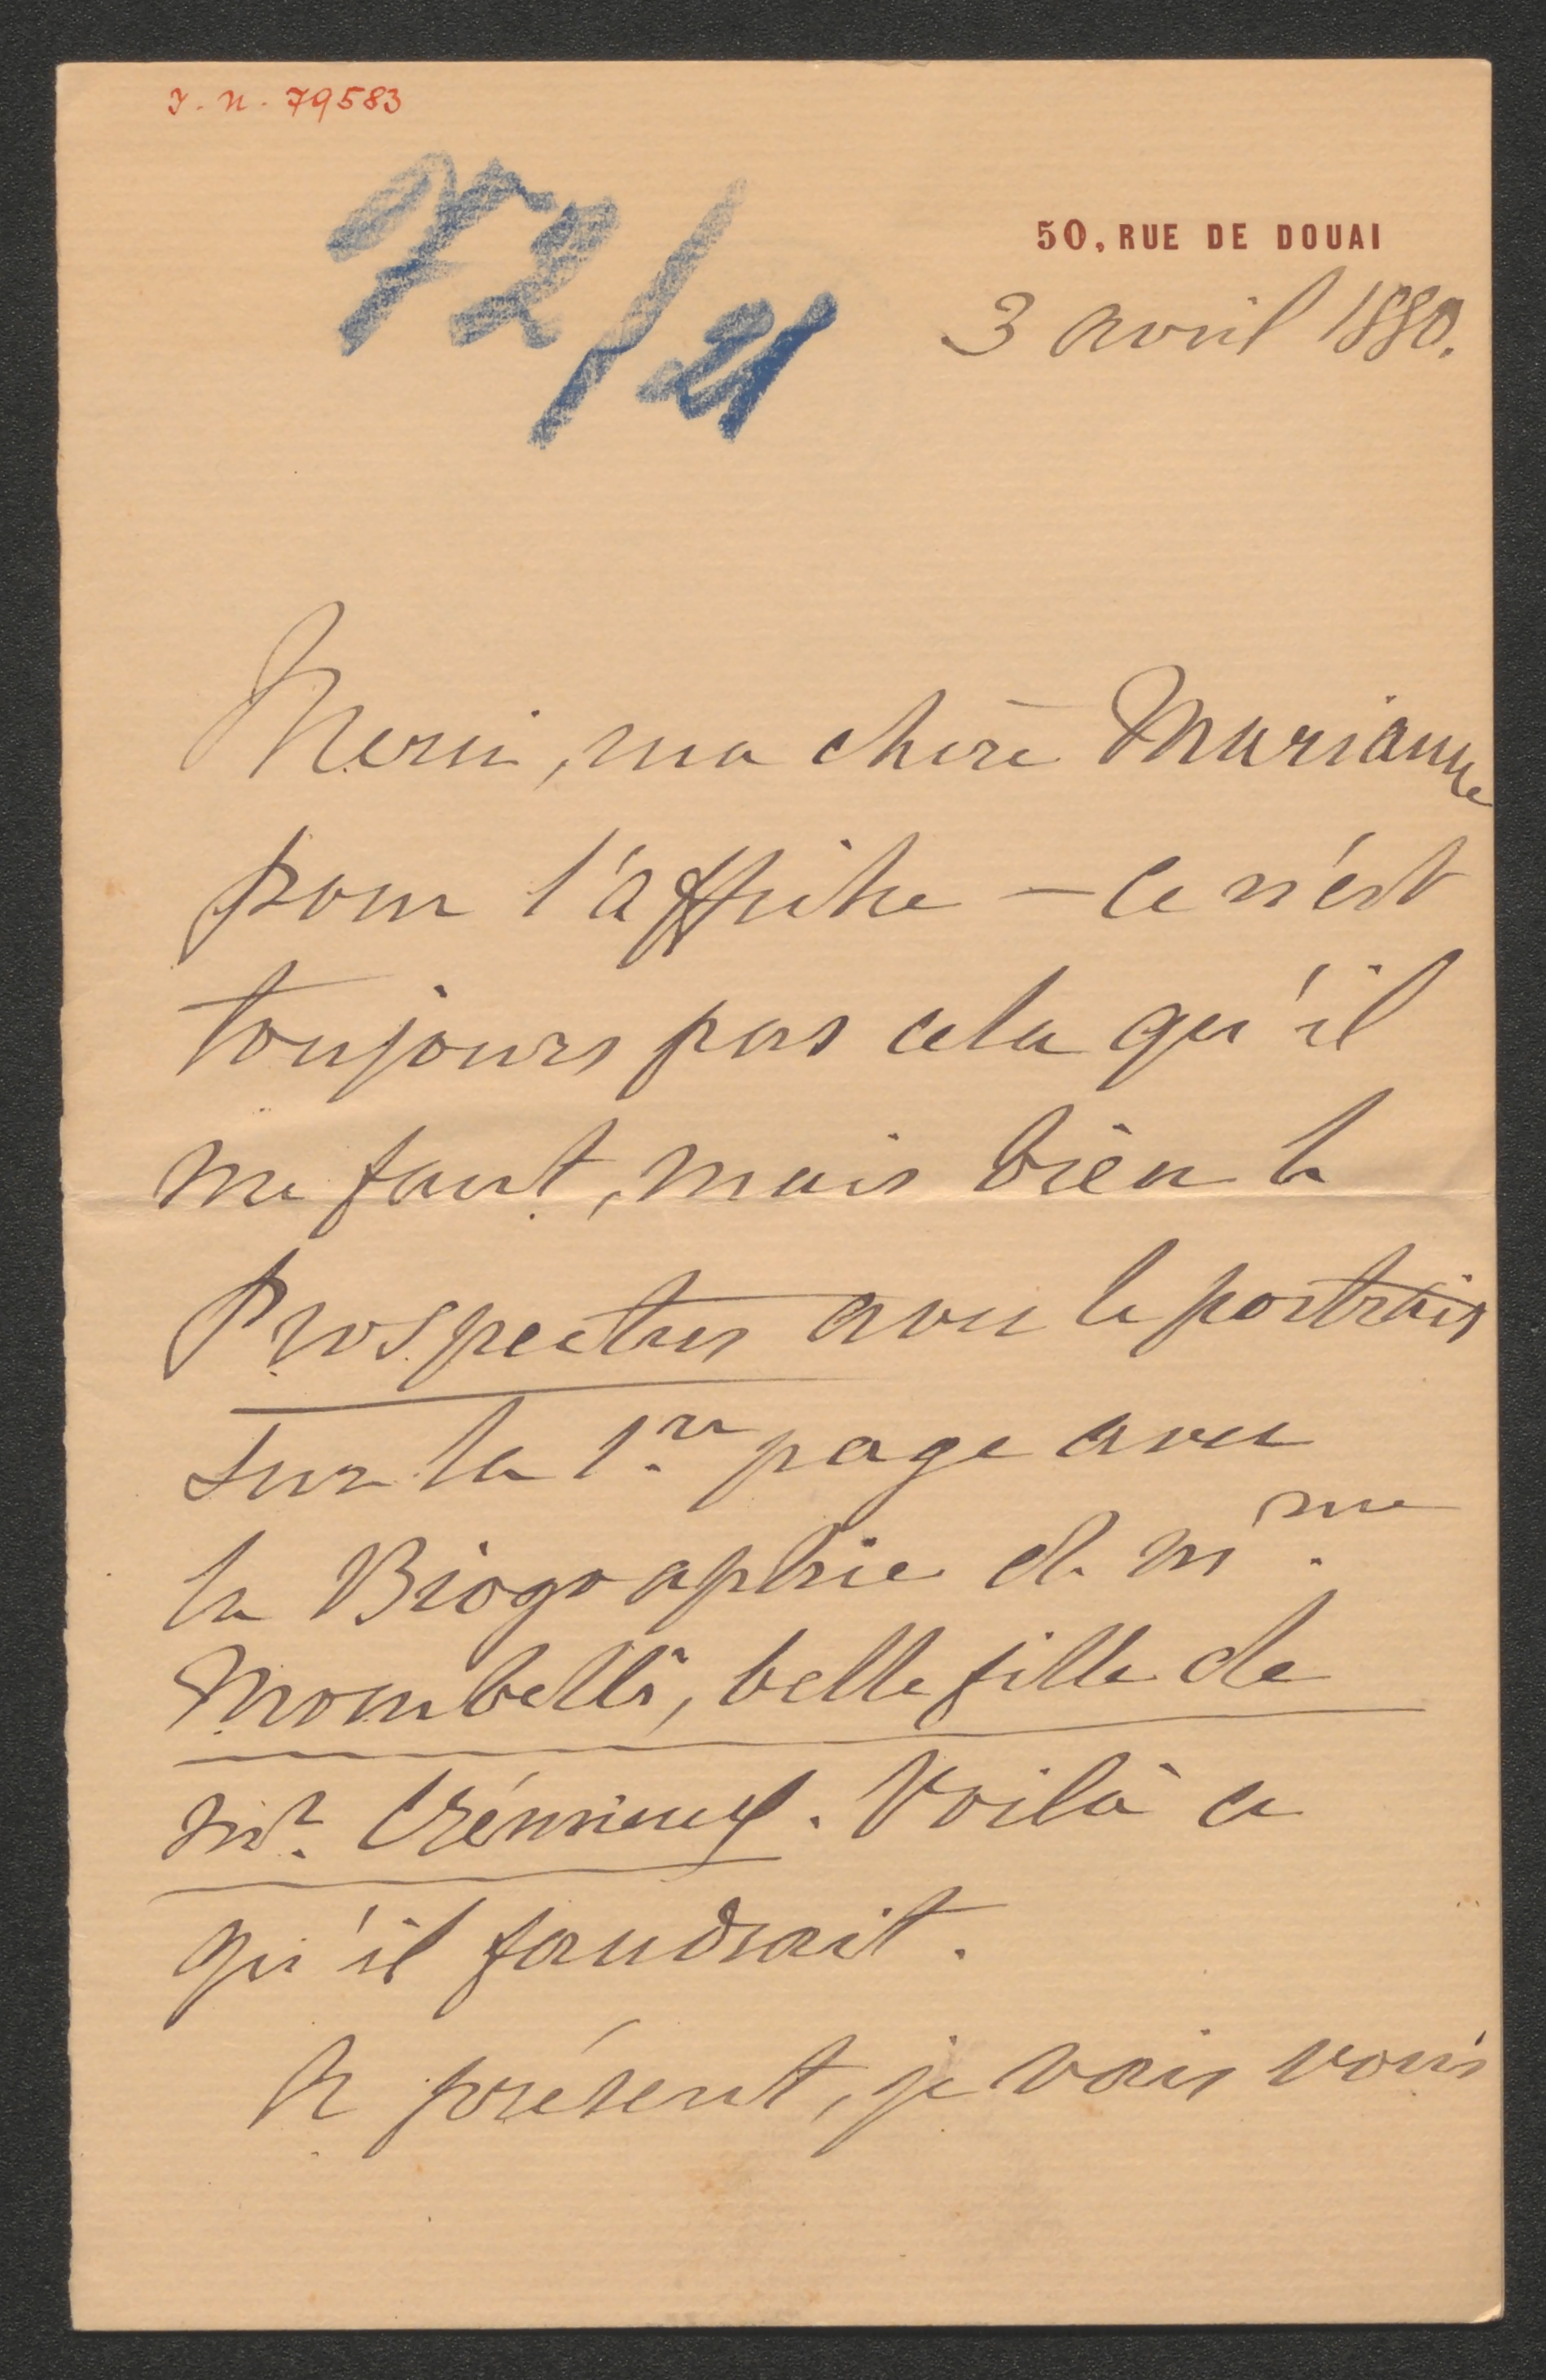 J. N. 79583
72/21
50, RUE DE DOUAI
3 avril 1880.
Merci, ma chère Marianne
pour l'affiche — ce n'est
toujours pas cela qu'il
me faut, mais bien le
Prospectus avec le portrait
sur la 1.re page avec
la Biographie de Mme.
Mombelli, belle fille de
Mr. Crémieux. Voilà ce
qu'il faudrait.
A présent, je vais vous